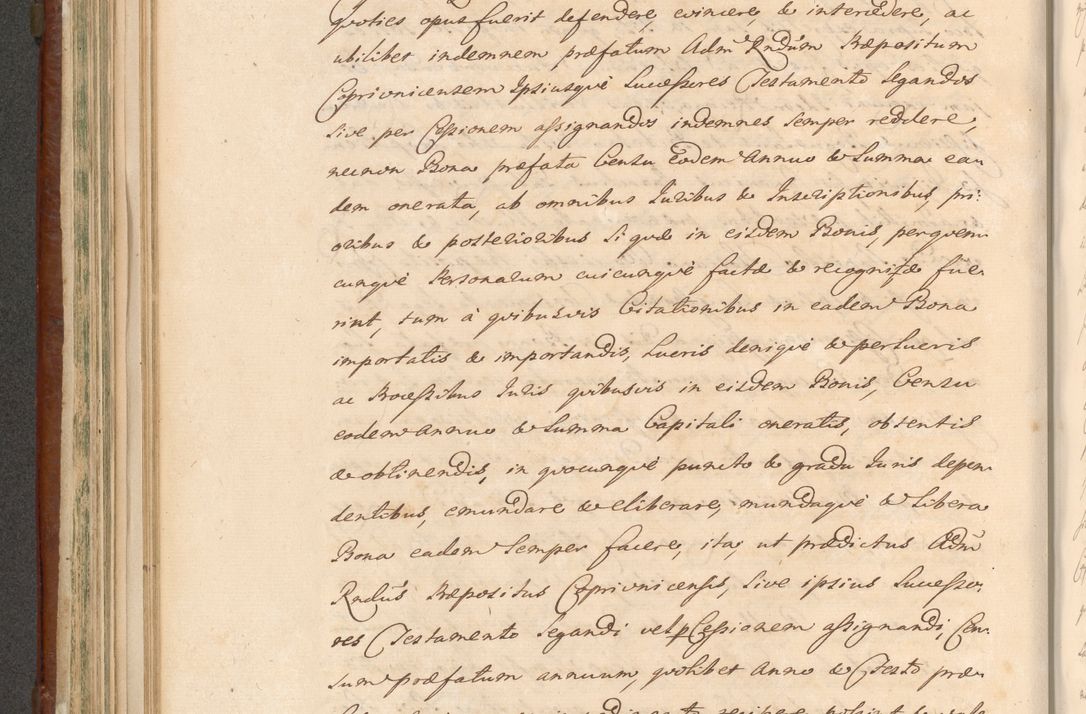 quoties opus fuerit defendere, evincere, & intercedere, ac
ubilibet indemnem præfatum Adm Rndum Præpositum
Coprivnicensem Ipsiusquè Successores Testamento legandos
sive per Cessionem assignandos indemnes semper reddere,
necnon Bona præfata Censu Eodem Annuo & Summa ea-
dem onerata, ab omnibus Iuribus & Inscriptionibus, pri-
oribus & posterioribus si quæ in eisdem Bonis, per quem-
cunquè Personarum cuicunquè factæ & recognitæ fue-
rint, tum à quibusvis Citationibus in eadem Bona
importatis & importandis, Lucris deniquè & perlucris
ac Processibus Iuris quibusvis in eisdem Bonis, Censu
eodem Annuo & Summa Capitali oneratis, obtentis
& obtinendis, in quocunquè puncto & gradu Iuris depen-
dentibus, emundare & eliberare, mundaquè & Libera
Bona eadem semper facere, ita, ut prædictus Adm
Rndus Præpositus Coprivnicensis, sive ipsius Successo-
res Testamento legandi vel p Cessionem assignandi, Cen-
sum præfatum annuum, quolibet Anno & Festo præ-